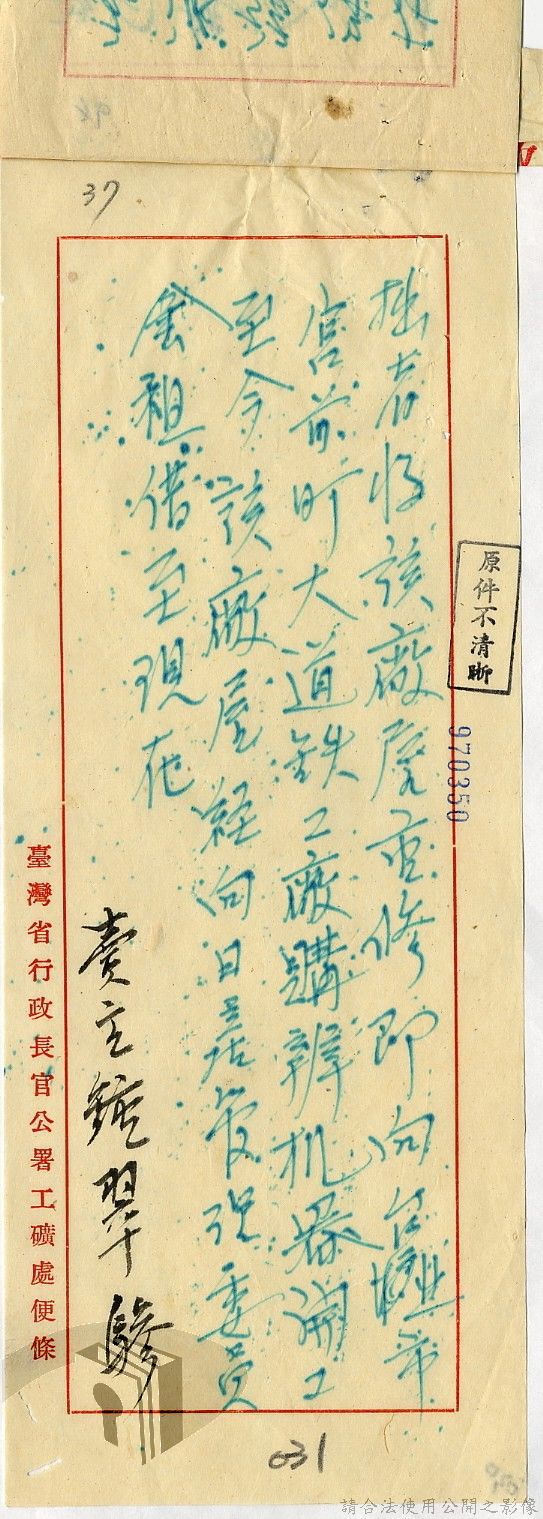 37
拙者將該廠房重修即向台北市
宮前町大道鉄工廠購辦机器開工
至今該廠屋経向日產管理委員
會租借至現在
賣主鐘翠
臺灣省行政長官公署工礦處便條
原件不清晰
970350
031
請合法使用公開之影像